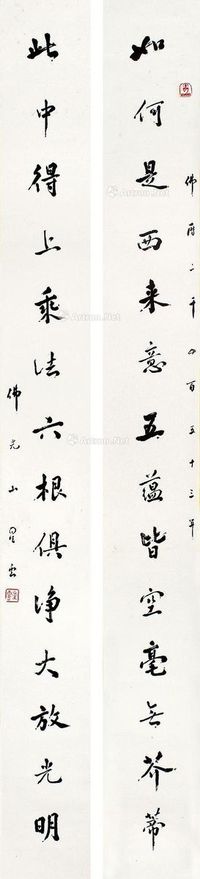 如何是西来意五蘊皆空毫无芥蒂
佛二千四百五十三年
此中得上乘法六根俱净大放光明
佛光山星云
Artron.Net